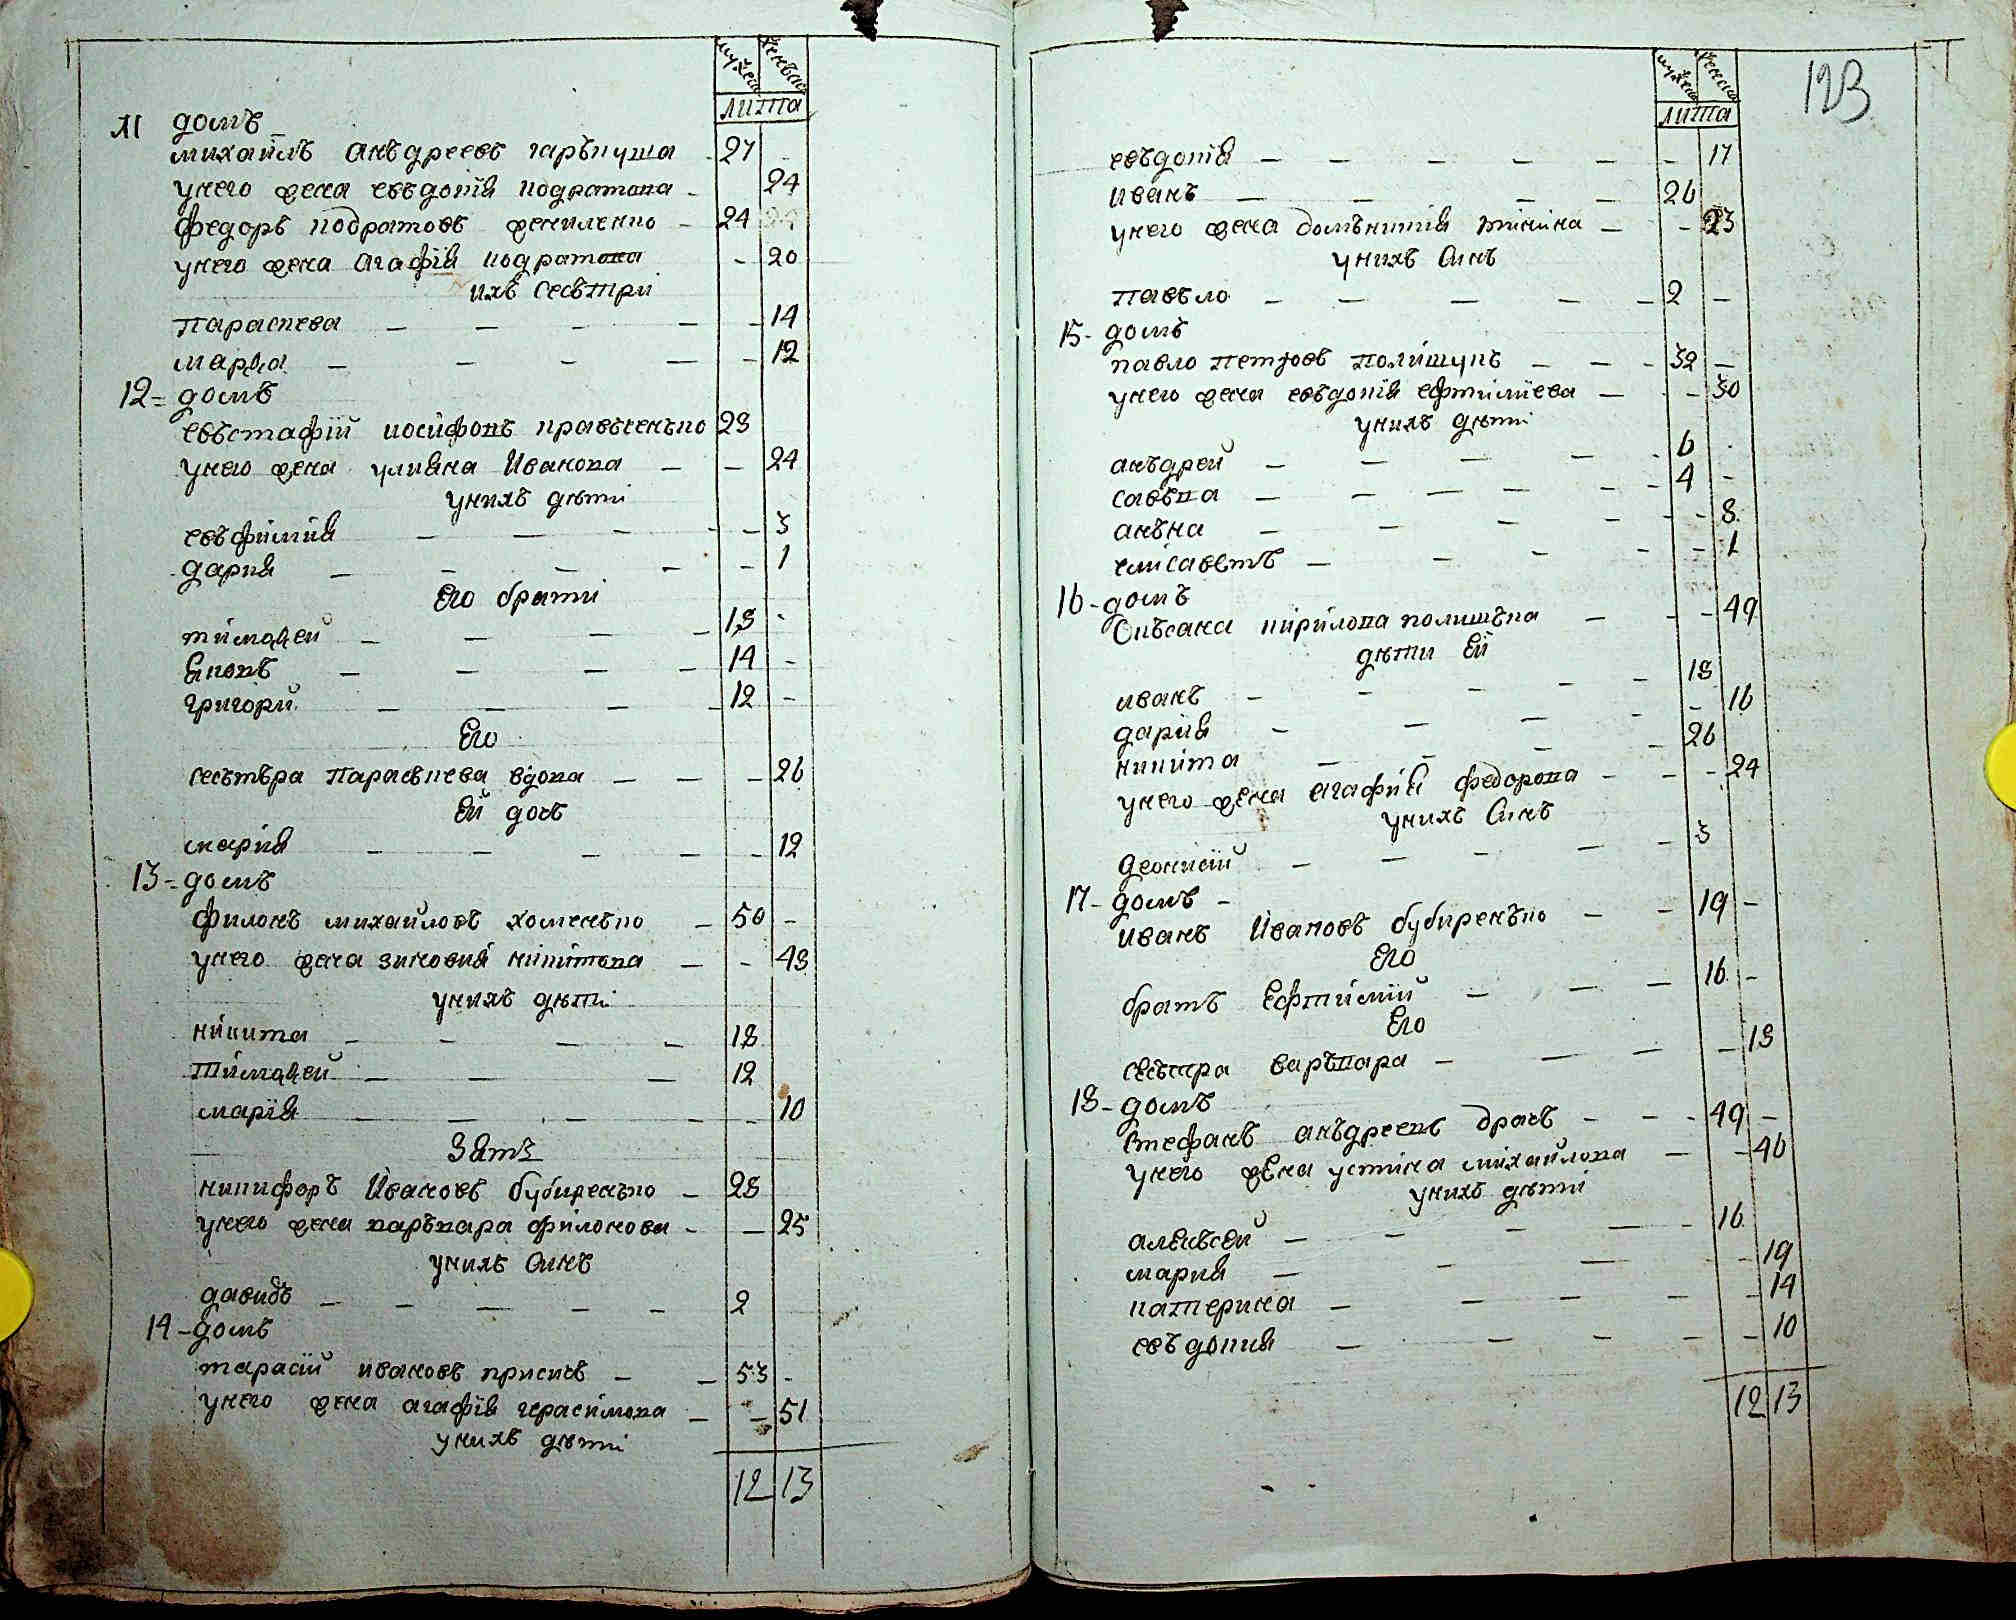 мужеска женъска
лита
11 домъ
михаилъ анъдреевъ гаръкуша 27
унего жена евъдокїя кодратова 24
федоръ кодратовъ жениленко 24
унего жена агафїя кодратова 20
ихъ сесътри
параскева 14
марѳа 12
12 домъ
евъстафїй иосифовъ кравъченъко 23
унего жена улияна Иванова 24
унихъ дѣти
евъфимия 3
дария 1
Его брати
тимоѳей 18
Яковъ 14
григорий 12
Его
сесътъра парасъкева вдова 26
Ей дочъ
мария 12
13 домъ
филонъ михайловъ хоменъко 50
унего жена зиновия никитова 48
унихъ дѣти
никита 18
тимоѳей 12
марїя 10
Зять
никифоръ Ивановъ бубиренъко 28
унего жена варъвара филонова 25
унихъ Синъ
давидъ 2
14 домъ
тарасїй ивановъ присичъ 53
унего жена агафїя герасимова 51
унихъ дѣти
12 13
123
мужеска женска
лита
евъдокїя 17
Иванъ 26
унего жена домъникия 23
унихъ Синъ
павъло 2
15 домъ
павло петровъ полищукъ 32
унего жена евъдокїя ефтимиева 30
унихъ дѣти
анъдрей 6
савъка 4
анъна 8
елисаветъ 1
16 домъ
Окъсана кирилова полищъка 49
дѣти Ей
иванъ 18
дарїя 16
никита 26
унего жена агафия федорова 24
унихъ Синъ
деонисїй 3
17 домъ
иванъ Ивановъ бубиренъко 19
Его
братъ Ефтимїй 16
Его
сесътра варъвара 13
18 домъ
Стефанъ анъдреевъ драчъ 49
унего жена устина михайлова 46
унихъ дѣти
алексѣй 16
мария 19
катерина 14
евъдокия 10
12 13